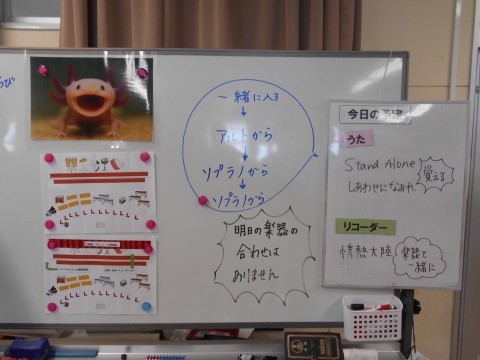 一緒に入る
アルトから
ソプラノから
ソプラノから
明日の楽器の
合わせは
ありません
今日の予定
うた
Stand Alone
しあわせになあれ
覚える
リコーダー
情熱大陸
楽器と
一緒に